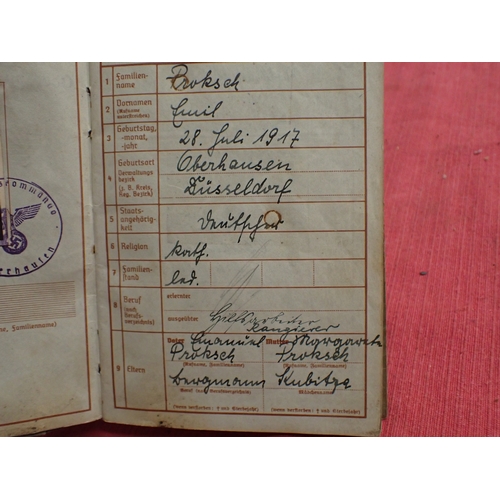 1 Familien-
name
Proksch
2 Vornamen
(Rufname
unterstreichen)
Emil
3 Geburtstag,
-monat,
-jahr
28. Juli 1917
4 Geburtsort
Verwaltungs-
bezirk
(z. B. Kreis,
Reg. Bezirk)
Oberhausen
Düsseldorf
5 Staats-
angehörig-
keit
Deutscher
6 Religion
kath.
7 Familien-
stand
led.
8 Beruf
(nach
Berufs-
verzeichnis)
erlernter
ausgeübter
Hilfsarbeiter
Rangierer
9 Eltern
Vater Emanuel Mutter Margarete
Proksch Proksch
(Rufname, Familienname) (Rufname, Familienname)
Bergmann Kubitza
Beruf Mädchenname
(wenn verstorben: † und Sterbejahr) (wenn verstorben: † und Sterbejahr)
me, Familienname)